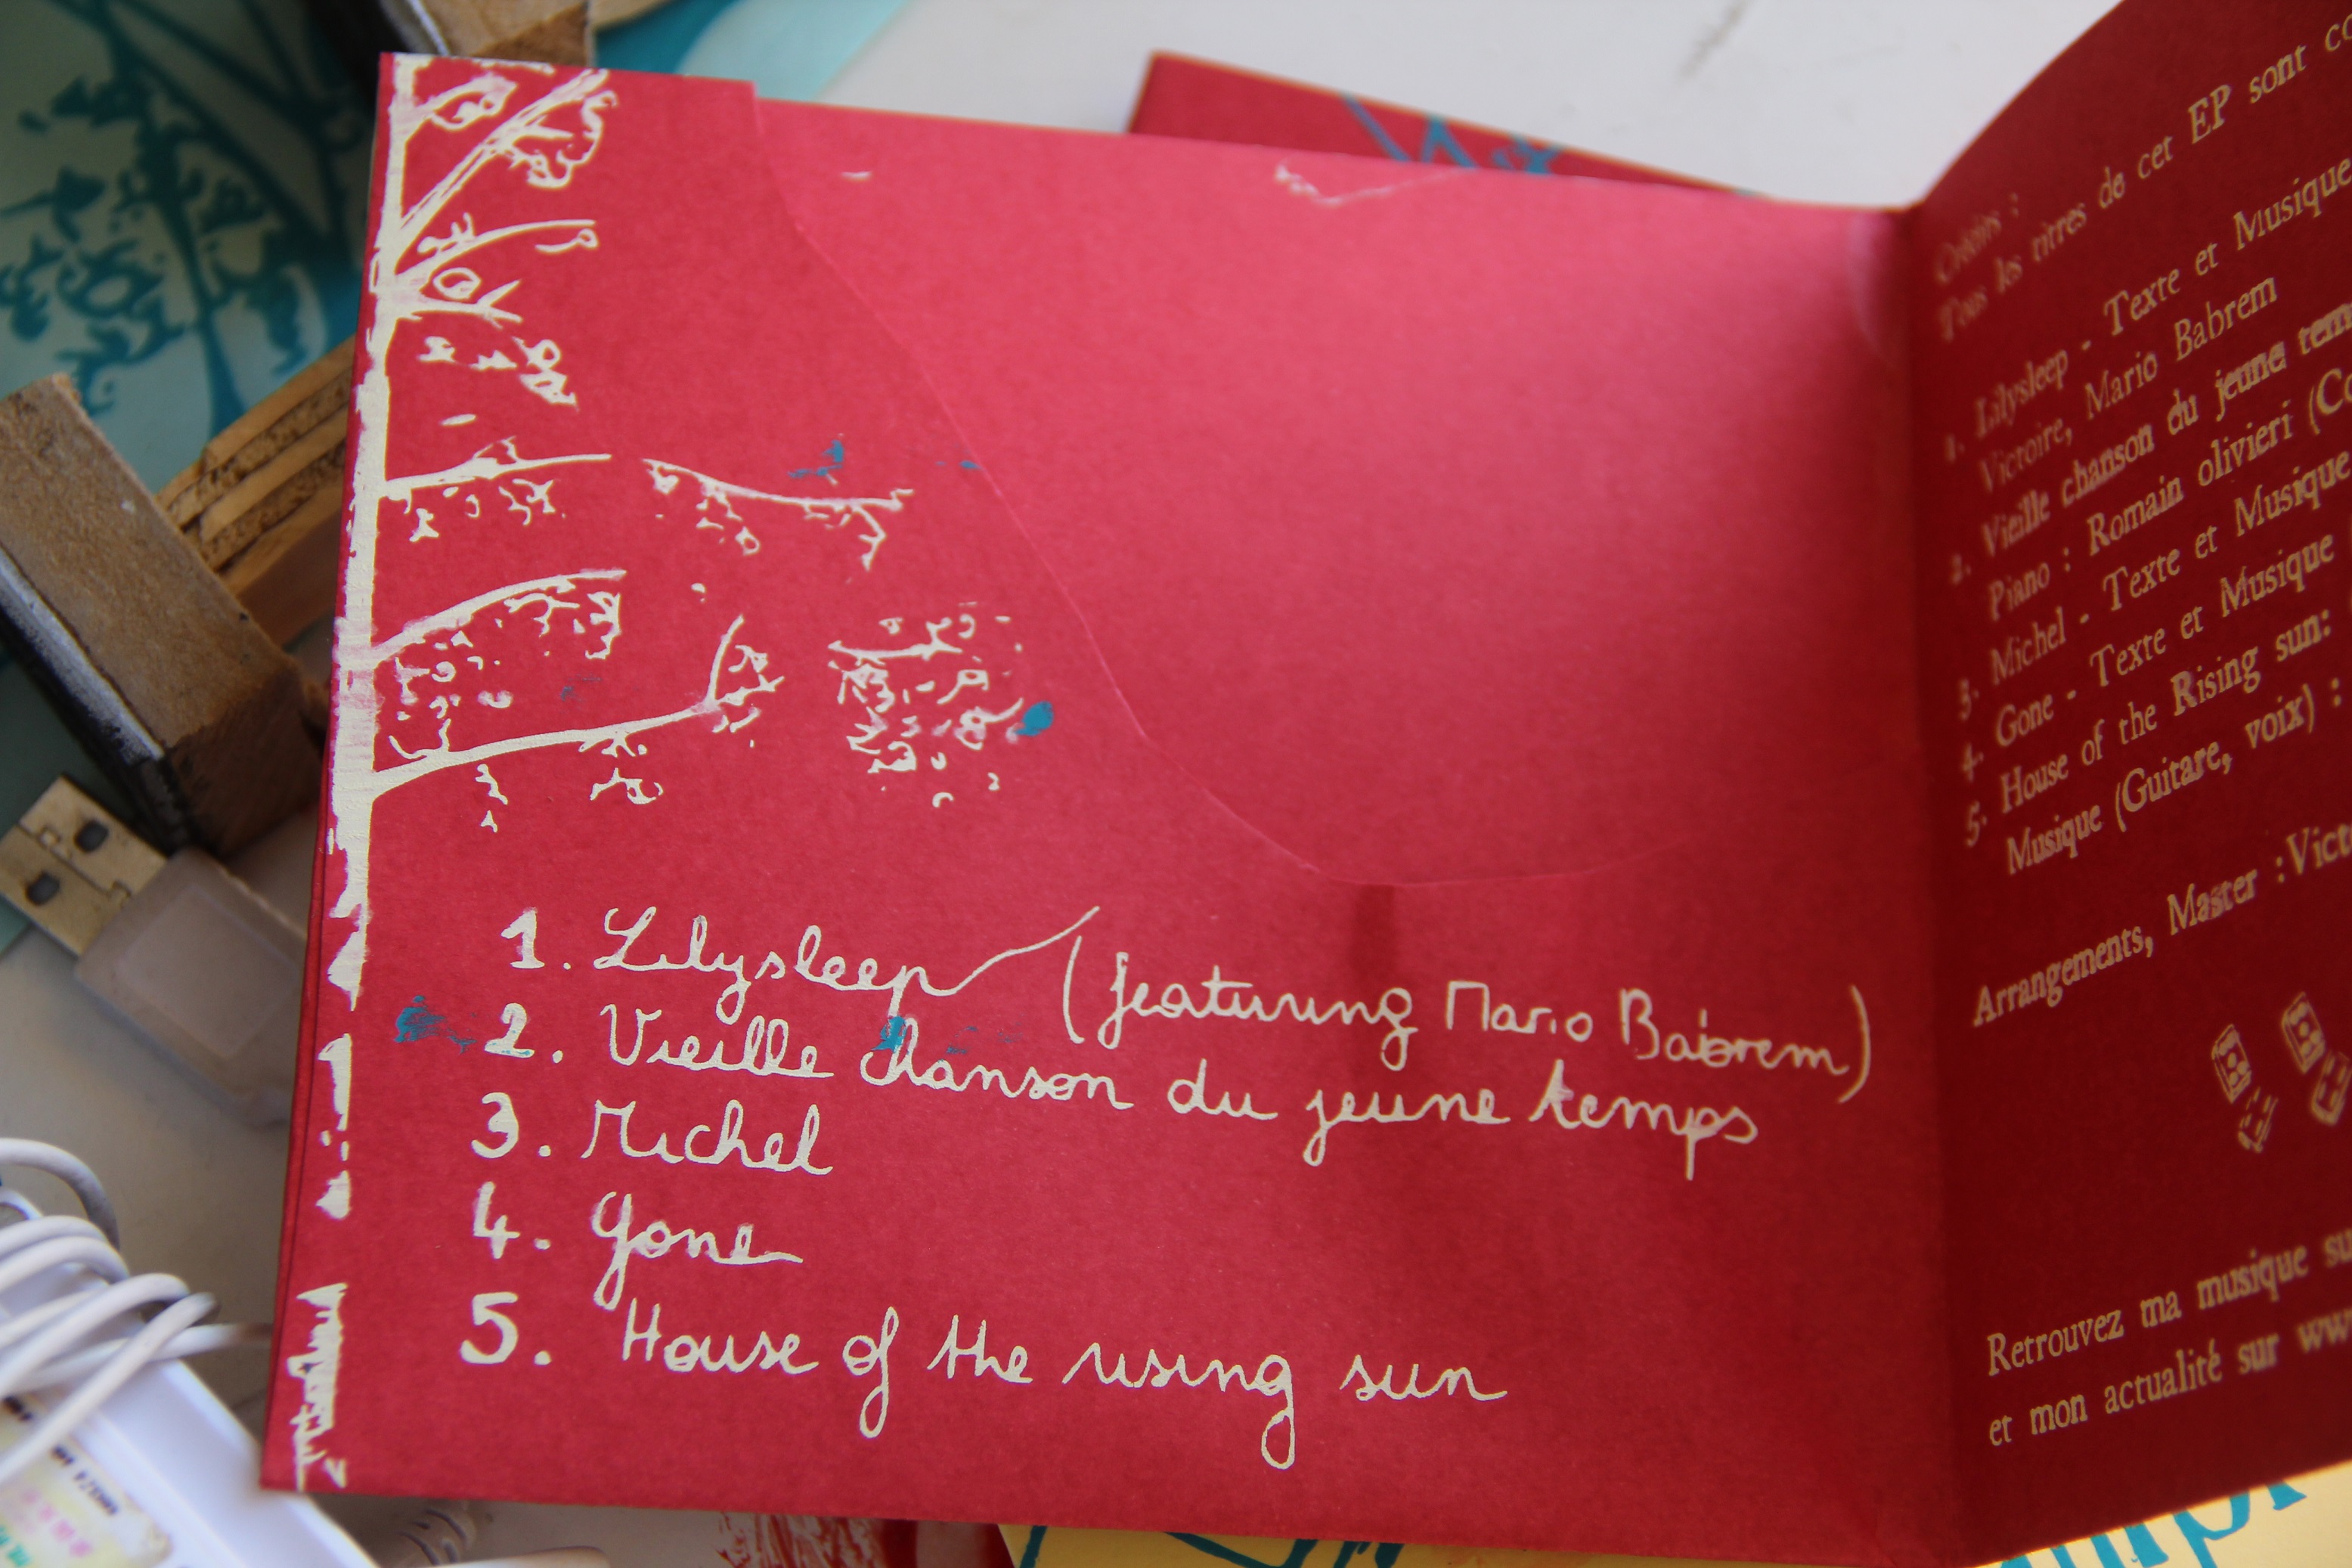 1. Lilysleep (featuring Mario Babrem)
2. Vieille chanson du jeune temps
3. Michel
4. Gone
5. House of the rising sun
Crédits :
Tous les titres de cet EP sont
1. Lilysleep - Texte et Musique
Victoire, Mario Babrem
2. Vieille chanson du jeune
Piano : Romain olivieri
3. Michel - Texte et Musique
4. Gone - Texte et Musique
5. House of the Rising sun:
Musique (Guitare, voix) :
Arrangements, Master :
Retrouvez ma musique
et mon actualité sur